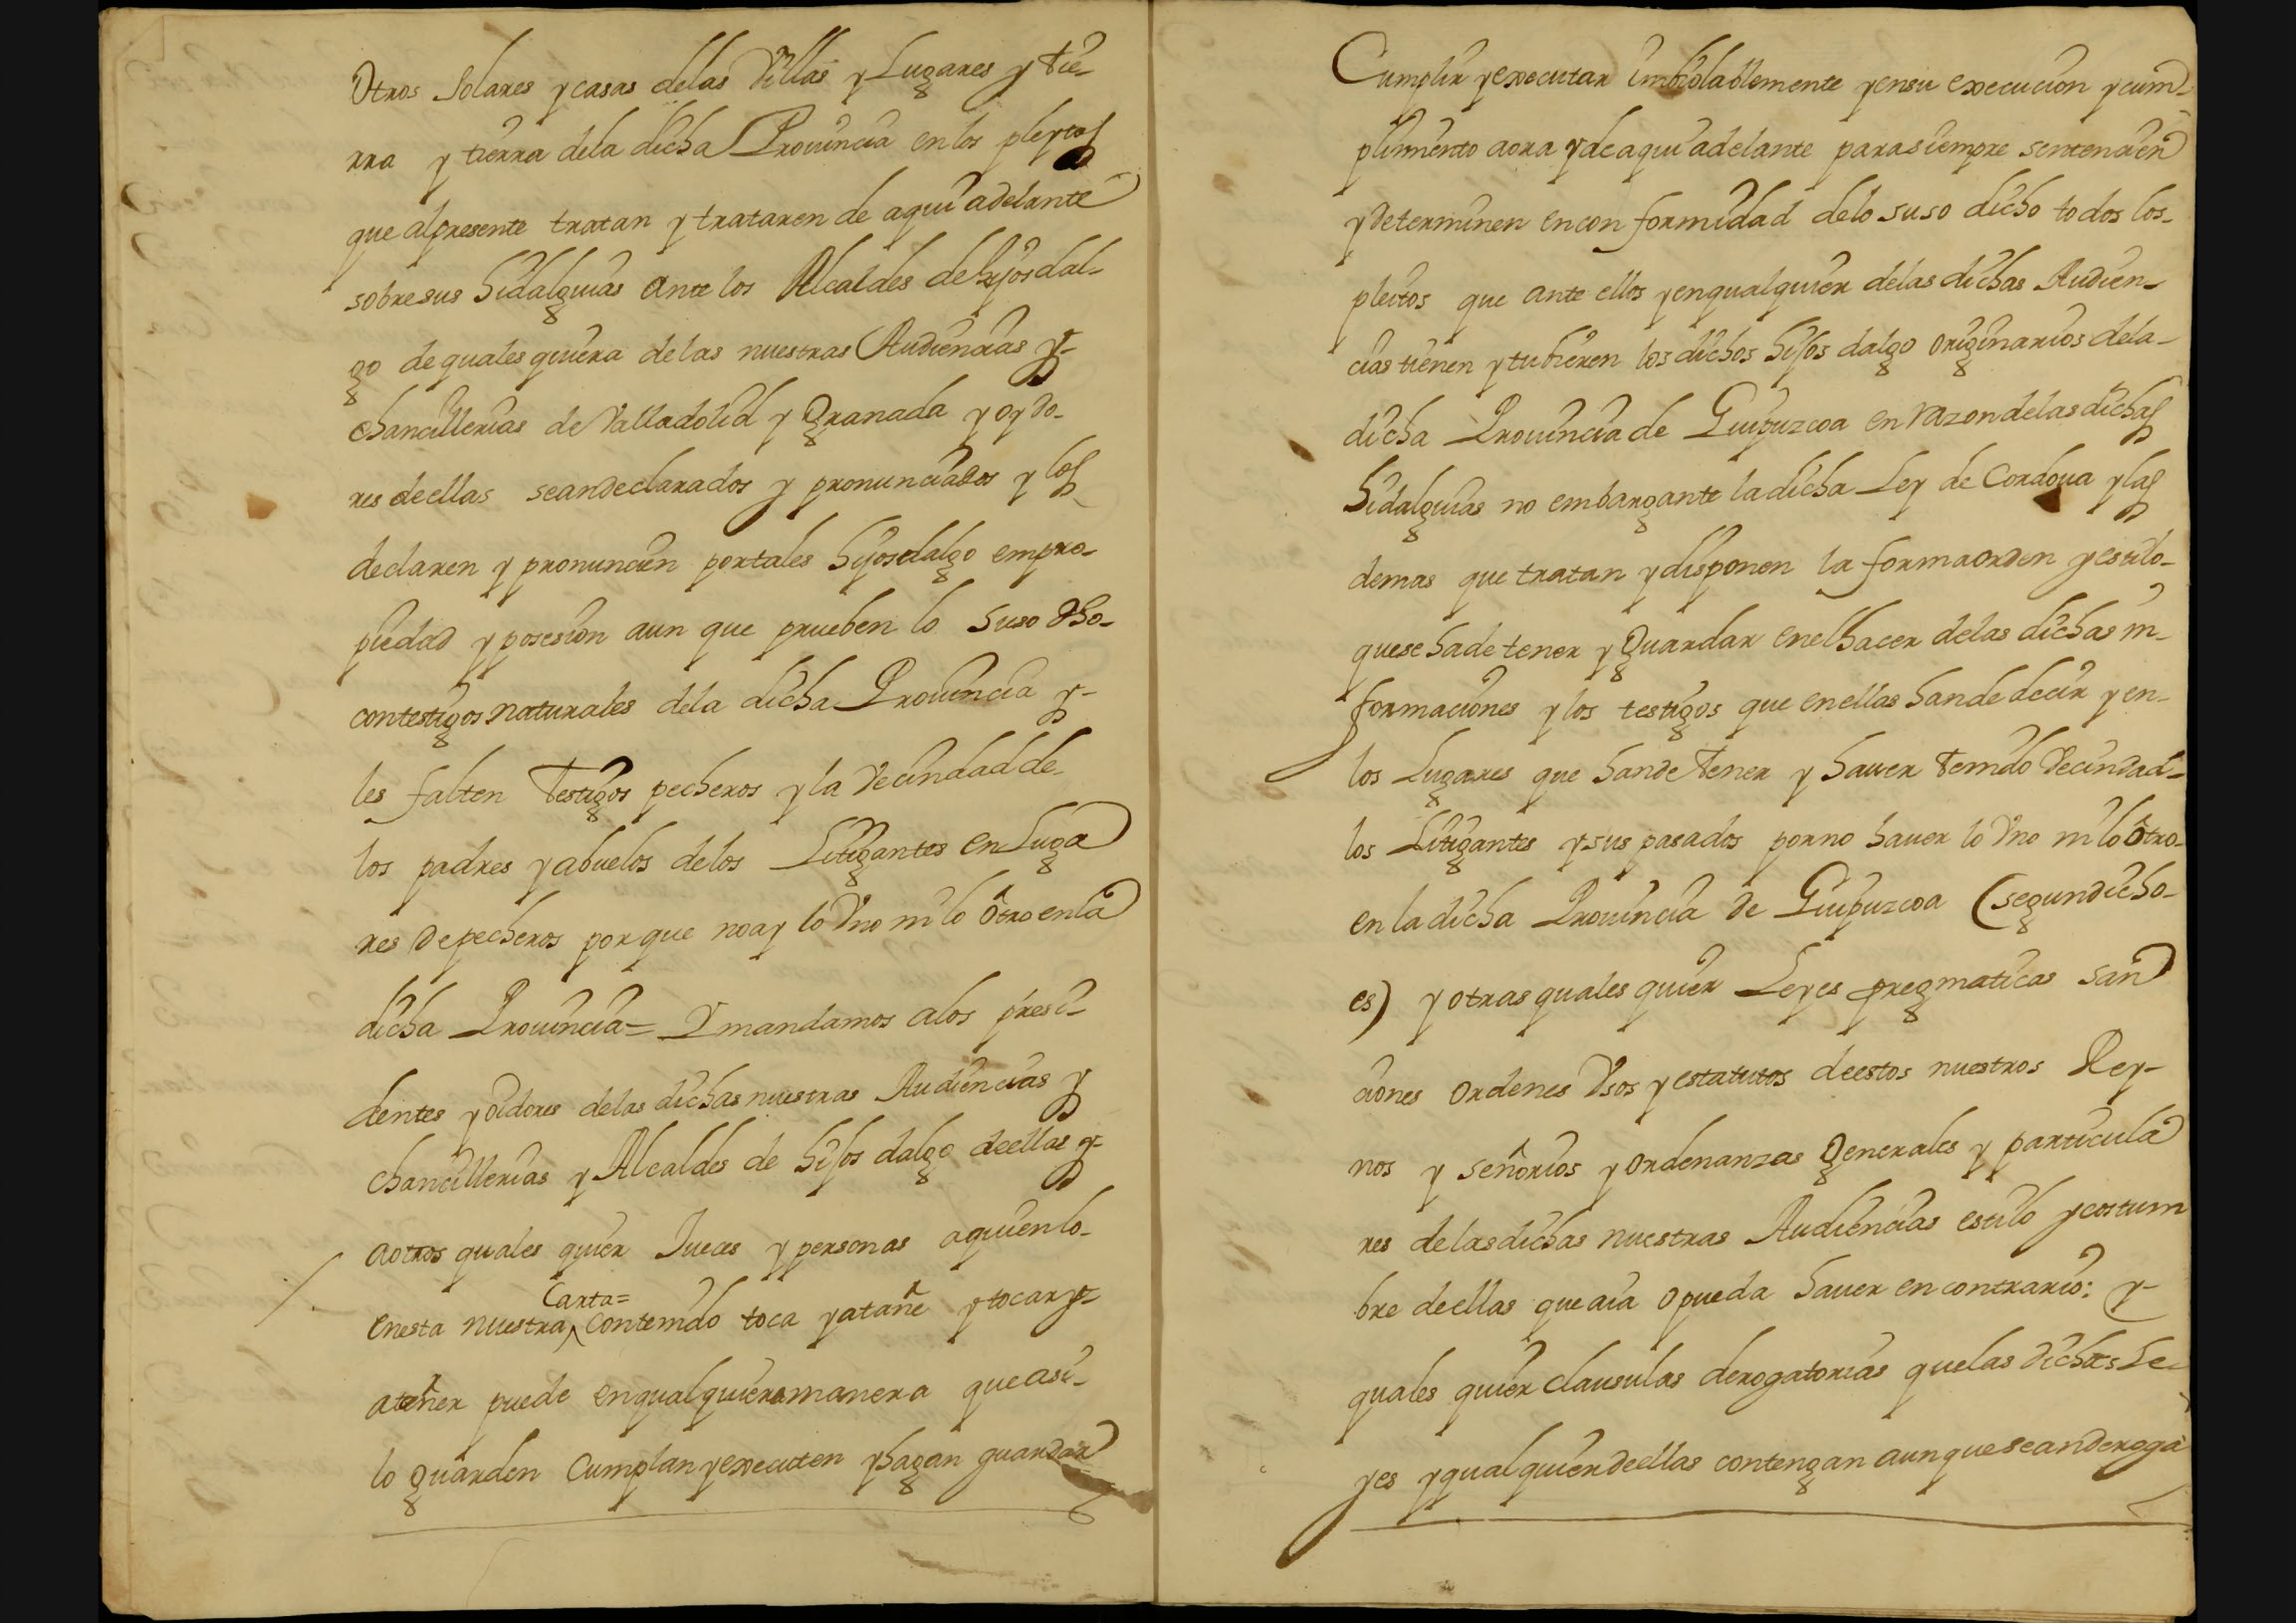 Otros Solares y casas delas Villas y Lugares y tie-
rra y tierra dela dicha Prouincia en los pleytos
que alpresente tratan y trataren de aqui adelante
sobresus hidalguias ante los Alcaldes de hijosdal-
go de quales quiera delas nuestras Audiencias y-
chancillerias de Valladolid y Granada y oydo-
res deellas seandeclarados y pronunciados y los
declaren y pronuncien portales hijosdalgo empro-
piedad y posesion aun que prueben lo suso dho-
contestigos naturales dela dicha Prouincia y-
les falten Testigos pecheros y la Vecindad de-
los padres y abuelos delos Litigantes en Luga
res depecheros por que noay lo Vno ni lo otro enla
dicha Prouincia= Y mandamos alos presi-
dentes y oidores delas dichas nuestras Audiencias y
chancillerias y Alcaldes de hijos dalgo deellas y-
aotros quales quier Jueces y personas aquienlo-
Carta=
enesta nuestra^contenido toca y atañe y tocar y-
atañer puede enqualquieramanera queasi-
lo guarden Cumplan y executen y hagan guardar
Cumplir y executar imbiolablemente y ensu execucion y cum-
plimiento aora y de aqui adelante parasiempre sentencien
y determinen encon formidad delo suso dicho todos los-
pleitos que ante ellos y enqualquier delas dichas Audien-
cias tienen y tubieren los dichos hijos dalgo originarios dela-
dicha Prouincia de Guipuzcoa en razon delas dichas
hidalguias no embargante la dicha Ley de Cordoua y las
demas que tratan y disponen la forma orden y estilo-
quese hade tener y Guardar enelhacer delas dichas in-
formaciones y los testigos que enellas hande decir y en-
los Lugares que hande tener y hauer tenido Vecindad-
los Litigantes y sus pasados porno hauer lo Vno ni lo otro-
en la dicha Prouincia de Guipuzcoa (segun dicho-
es) y otras quales quier Leyes pregmaticas san
ciones ordenes Vsos y estatutos deestos nuestros Rey-
nos y señorios y ordenanzas Generales y particula
res delasdichas nuestras Audiencias estilo y costum
bre deellas que aia o pueda hauer en contrario: y-
quales quier clausulas derogatorias quelas dichas le-
yes y qualquierdeellas contengan aunqueseanderoga